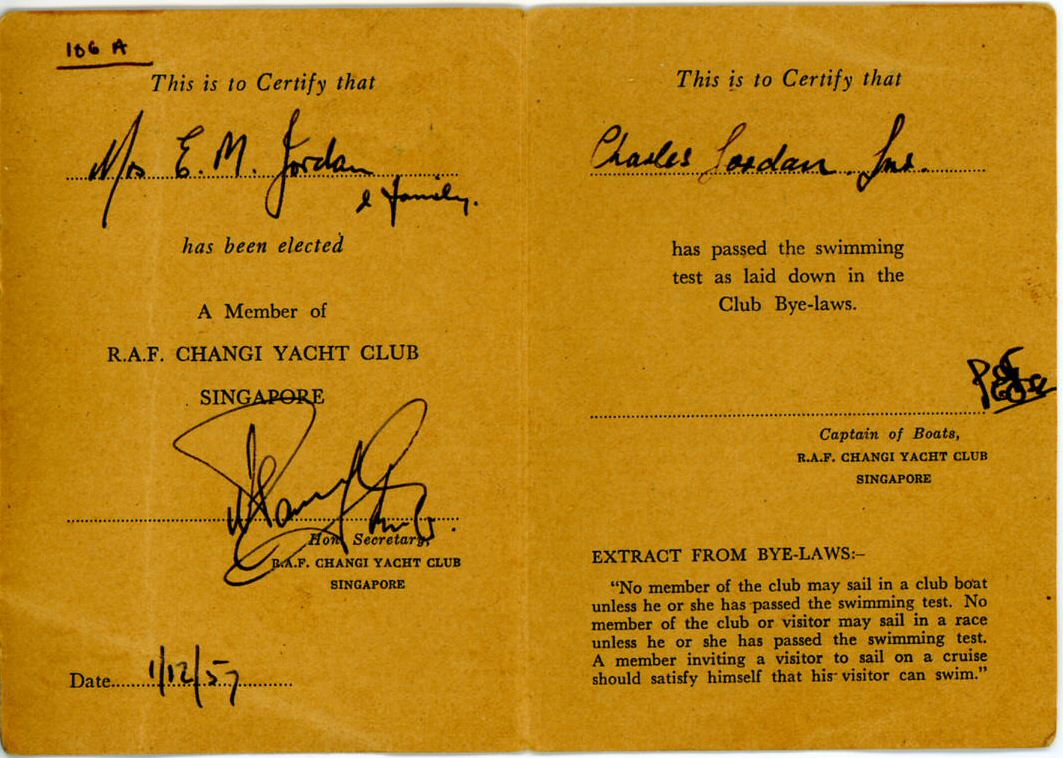 106 A
This is to Certify that
Mrs E. M. Jordan
& family.
has been elected
A Member of
R.A.F. CHANGI YACHT CLUB
SINGAPORE
Hon. Secretary,
R.A.F. CHANGI YACHT CLUB
SINGAPORE
Date 1/12/57
This is to Certify that
Charles Jordan Jnr.
has passed the swimming
test as laid down in the
Club Bye-laws.
Captain of Boats,
R.A.F. CHANGI YACHT CLUB
SINGAPORE
EXTRACT FROM BYE-LAWS:–
“No member of the club may sail in a club boat
unless he or she has passed the swimming test. No
member of the club or visitor may sail in a race
unless he or she has passed the swimming test.
A member inviting a visitor to sail on a cruise
should satisfy himself that his visitor can swim.”